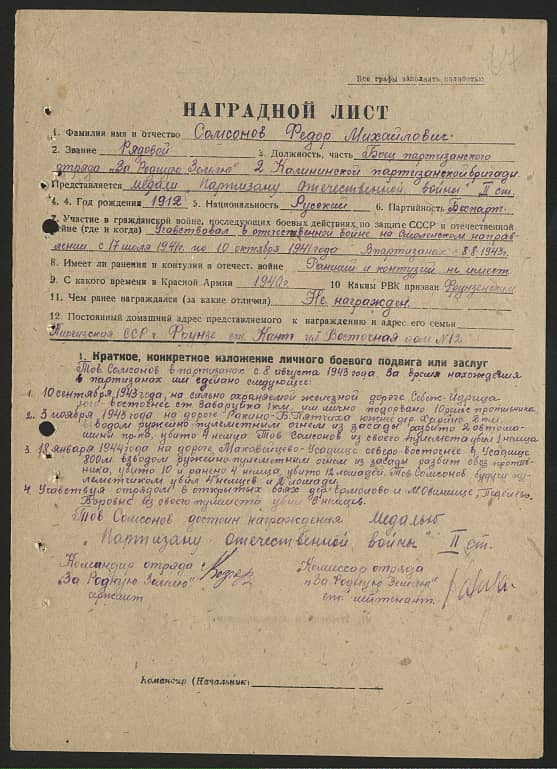 Все графы заполнять полностью
НАГРАДНОЙ ЛИСТ
1. Фамилия имя и отчество Самсонов Федор Михайлович
2. Звание Рядовой 3. Должность, часть Боец партизанского
отряда „За Родную Землю" 2 Калининской партизанской бригады.
Представляется медали „Партизану отечественной войны" II ст.
4. 4. Год рождения 1912 5. Национальность Русский 6. Партийность Беспарт.
7. Участие в гражданской войне, последующих боевых действиях по защите СССР и отечественной
войне (где и когда) Участвовал в отечественной войне на Смоленском направ-
лении с 17 июля 1941г. по 10 октября 1941 года В партизанах с 8.8.1943г.
8. Имеет ли ранения и контузии в отечест. войне Ранений и контузий не имеет
9. С какого времени в Красной Армии 1940г. 10 Каким РВК призван Фрунзенским
11. Чем ранее награждался (за какие отличия) Не награжден.
12. Постоянный домашний адрес представляемого к награждению и адрес его семьи
Киргизская ССР г. Фрунзе ст. Кант ул Восточная дом №12.
1. Краткое, конкретное изложение личного боевого подвига или заслуг
Тов Самсонов в партизанах с 8 августа 1943 года За время нахождения
в партизанах им сделано следующее:
1. 10 сентября 1943 года, на сильно охраняемой железной дороге Себеж-Идрица
восточнее ст Заваруйка 1 км. им лично подорвано 10 рельс противника
2. 3 ноября 1943 года на дороге Рахино-Б.Пятиха южнее дер
взводом ружейно-пулеметным огнем из засады разбито 2 автома-
шины пр-ка, убито 4 немца Тов Самсонов из своего пулемета убил 1 немца
3. 18 января 1944 года на дороге Маковейцево-Усадище северо-восточнее Усадище
800м взводом ружейно-пулеметным огнем из засады разбит обоз против-
ника, убито 10 и ранено 4 немца, убито 12 лошадей. Тов Самсонов будучи пу-
леметчиком убил 4 немцев и 2 лошади.
4. Участвуя отрядом в открытых боях дер Ермолово и
из своего пулемета убил немцев.
Тов Самсонов достоин награждения медалью
„Партизану отечественной войны" II ст.
Командир отряда
„За Родную Землю"
сержант
Комиссар отряда
„За Родную Землю"
ст. лейтенант.
Командир (Начальник)